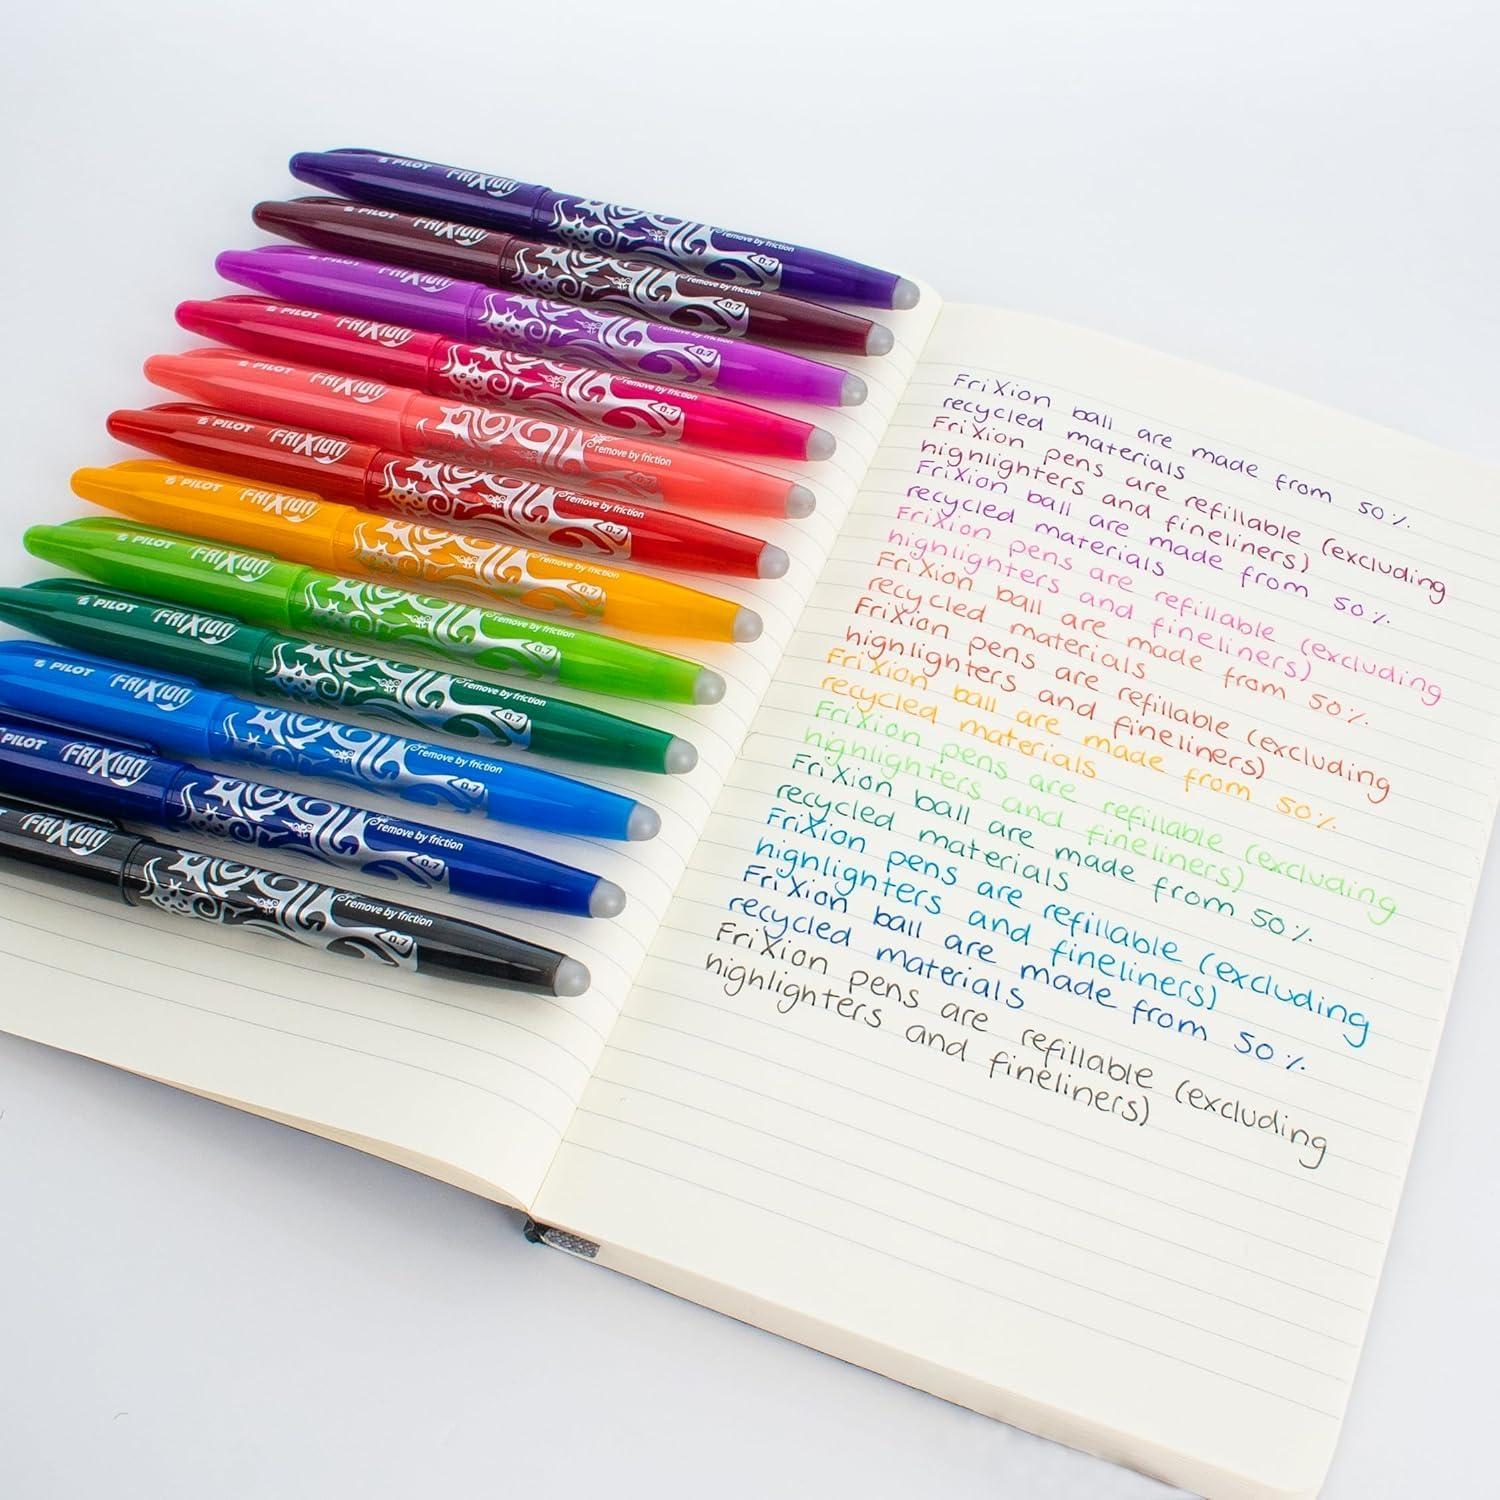 PILOT FRIXION remove by friction 0.7
PILOT FRIXION remove by friction 0.7
PILOT FRIXION remove by friction 0.7
PILOT FRIXION remove by friction 0.7
PILOT FRIXION remove by friction 0.7
PILOT FRIXION remove by friction 0.7
PILOT FRIXION remove by friction 0.7
PILOT FRIXION remove by friction 0.7
PILOT FRIXION remove by friction 0.7
PILOT FRIXION remove by friction 0.7
PILOT FRIXION remove by friction 0.7
FRIXION remove by friction 0.7
FriXion ball are made from 50%
recycled materials
FriXion pens are refillable (excluding
highlighters and fineliners)
FriXion ball are made from 50%
recycled materials
FriXion pens are refillable (excluding
highlighters and fineliners)
FriXion ball are made from 50%
recycled materials
FriXion pens are refillable (excluding
highlighters and fineliners)
FriXion ball are made from 50%
recycled materials
FriXion pens are refillable (excluding
highlighters and fineliners)
FriXion ball are made from 50%
recycled materials
FriXion pens are refillable (excluding
highlighters and fineliners)
FriXion ball are made from 50%
recycled materials
FriXion pens are refillable (excluding
highlighters and fineliners)